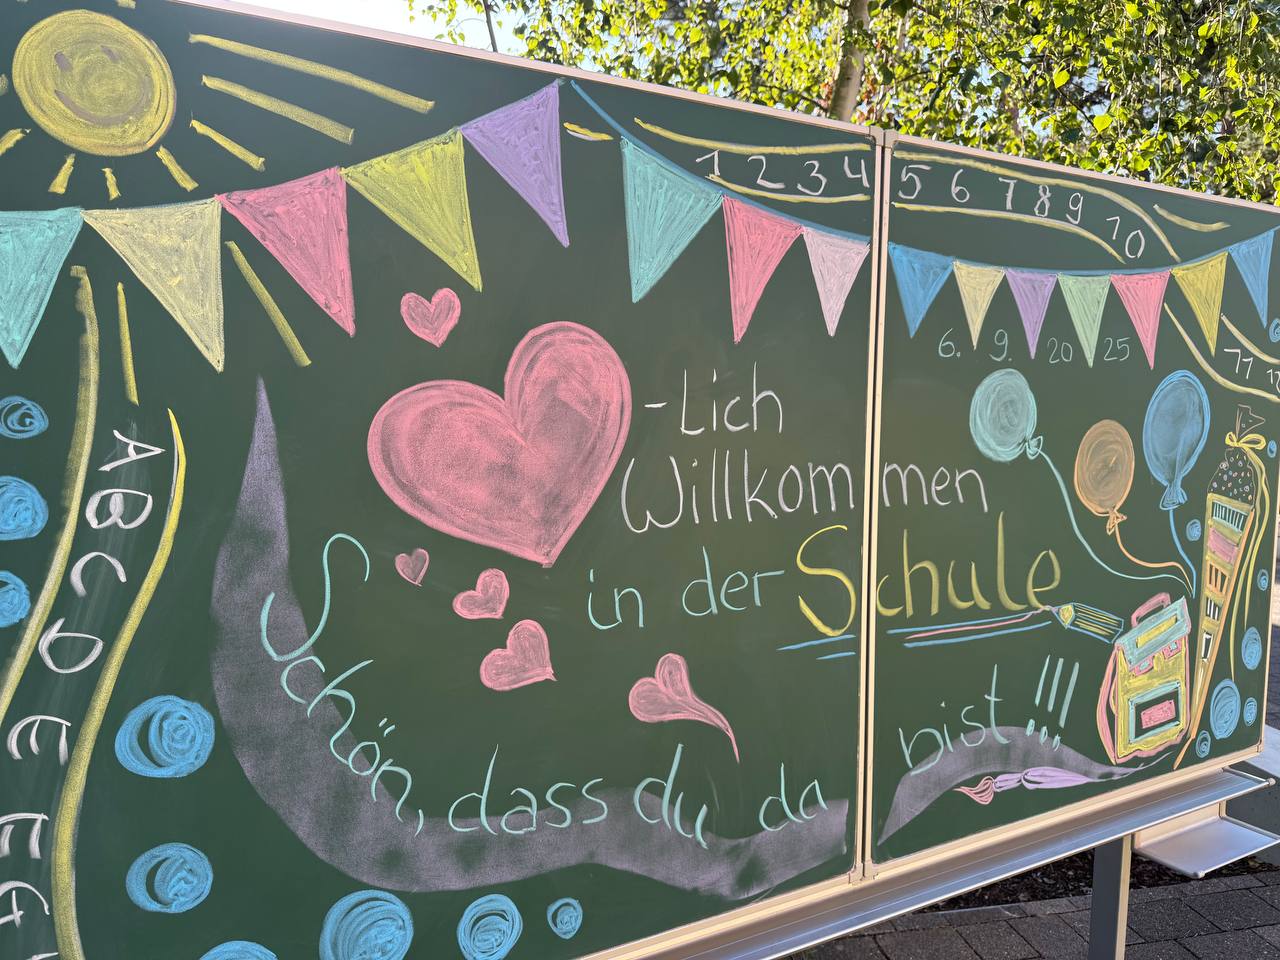 1 2 3 4 5 6 7 8 9 10
11
6. 9. 2025
-Lich
Willkommen
in der Schule
Schön, dass du da bist !!!
A B C D E F G